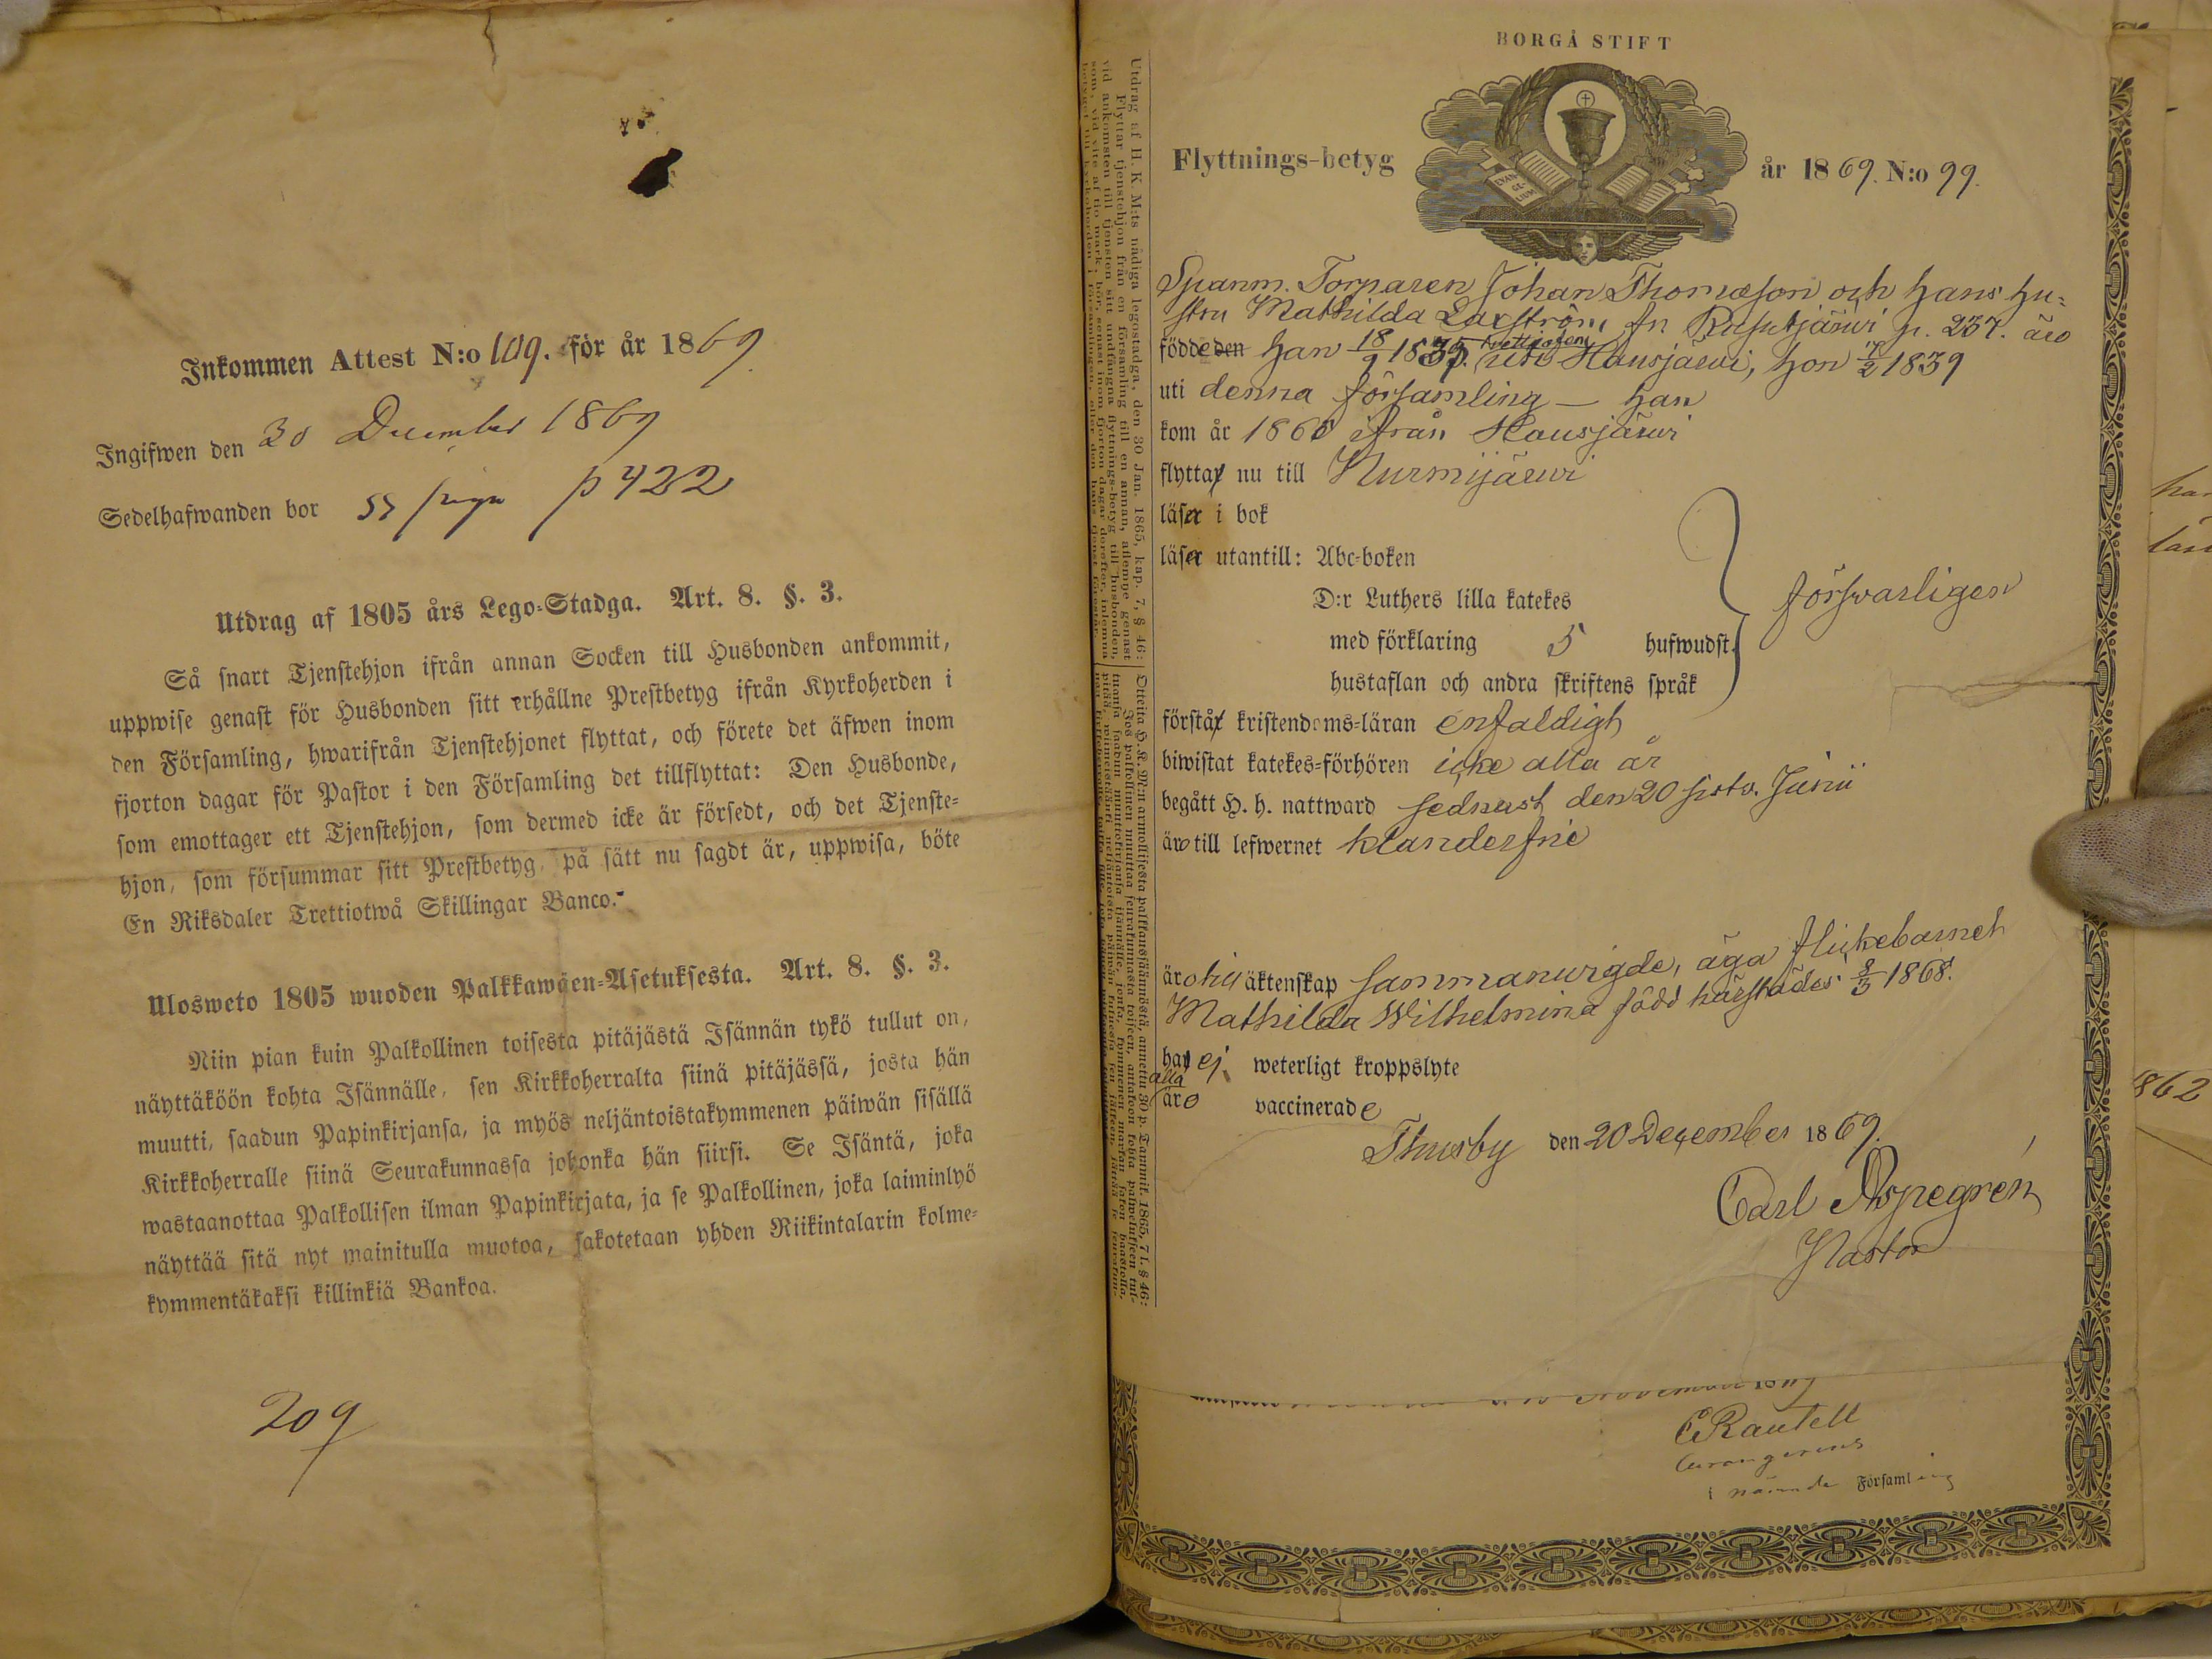 Inkommen Attest N:o 109. för år 1869.
Ingifwen den 30 December 1869
Sedelhafwanden bor p 422
Utdrag af 1805 års Lego-Stadga. Art. 8. §. 3.
Så snart Tjenstehjon ifrån annan Socken till Husbonden ankommit,
uppwise genast för Husbonden sitt erhållne Prestbetyg ifrån Kyrkoherden i
den Församling, hwarifrån Tjenstehjonet flyttat, och förete det äfwen inom
fjorton dagar för Pastor i den Församling det tillflyttat: Den Husbonde,
som emottager ett Tjenstehjon, som dermed icke är försedt, och det Tjenste-
hjon, som försummar sitt Prestbetyg, på sätt nu sagdt är, uppwisa, böte
En Riksdaler Trettiotwå Skillingar Banco.
Ulosweto 1805 wuoden Palkkawäen-Asetuksesta. Art. 8. §. 3.
Niin pian kuin Palkollinen toisesta pitäjästä Isännän tykö tullut on,
näyttäköön kohta Isännälle, sen Kirkkoherralta siinä pitäjässä, josta hän
muutti, saadun Papinkirjansa, ja myös neljäntoistakymmenen päiwän sisällä
Kirkkoherralle siinä Seurakunnassa johonka hän siirsi. Se Isäntä, joka
wastaanottaa Palkollisen ilman Papinkirjata, ja se Palkollinen, joka laiminlyö
näyttää sitä nyt mainitulla muotoa, sakotetaan yhden Riikintalarin kolme-
kymmentäkaksi killinkiä Bankoa.
209
BORGÅ STIFT
Flyttnings-betyg år 1869. N:o 99.
EVAN-
GE-
LIUM
Spanm. Torparen Johan Thomasson och hans hu-
stru Mathilda Laxström fn Rusutjärwi p. 237. äro
födde den han 18/9 1835. uti Hausjärwi, hon /2 1839
uti denna församling — han
kom år 1860 ifrån Hausjärwi
flyttar nu till Nurmijärwi
läser i bok
läser utantill: Abc-boken
D:r Luthers lilla katekes
med förklaring 5 hufwudst.
försvarligen
hustaflan och andra skriftens språk
förstår kristendoms-läran enfaldigt
biwistat katekes-förhören icke alla år
begått H. h. nattward sednast den 20 sistv. Junii
äro till lefwernet klanderfrie
äro till äktenskap sammanvigde, äga flickebarnet
Mathilda Wilhelmina född härstädes 8/3 1868.
hay ej weterligt kroppslyte
alla
äro vaccinerade
Thusby den 20 December 1869.
Carl Aspegrén
Pastor
Utdrag af H. K. M:ts nådiga legostadga, den 30 Jan. 1865, kap. 7, § 46:
Flyttar tjenstehjon från en församling till en annan, aflemne genast
vid ankomsten till tjensten sitt undfångna flyttnings-betyg till husbonden,
Församling
862